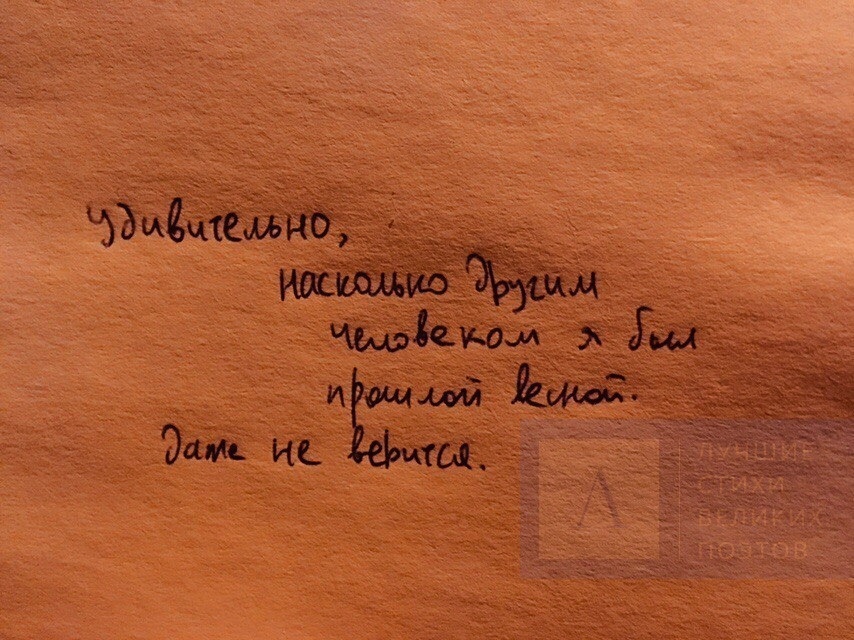 удивительно,
насколько другим
человеком я был
прошлой весной.
даже не верится.
Л
ЛУЧШИЕ
СТИХИ
ВЕЛИКИХ
ПОЭТОВ